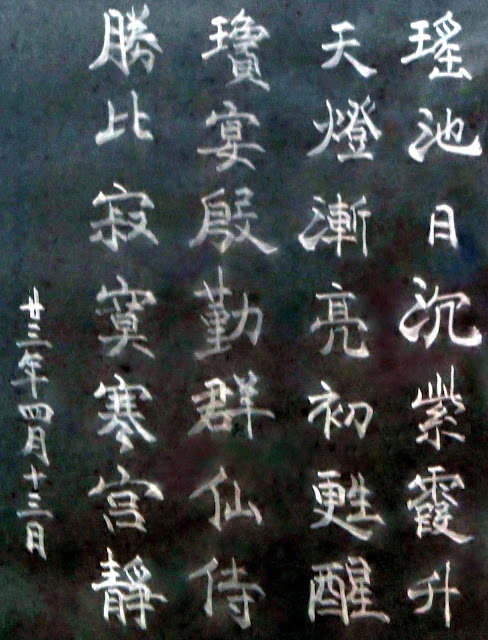 瑤池日沉紫霞升
天燈漸亮初甦醒
瓊宴殷勤群仙侍
勝比寂寞寒宮靜
廿三年四月十三日